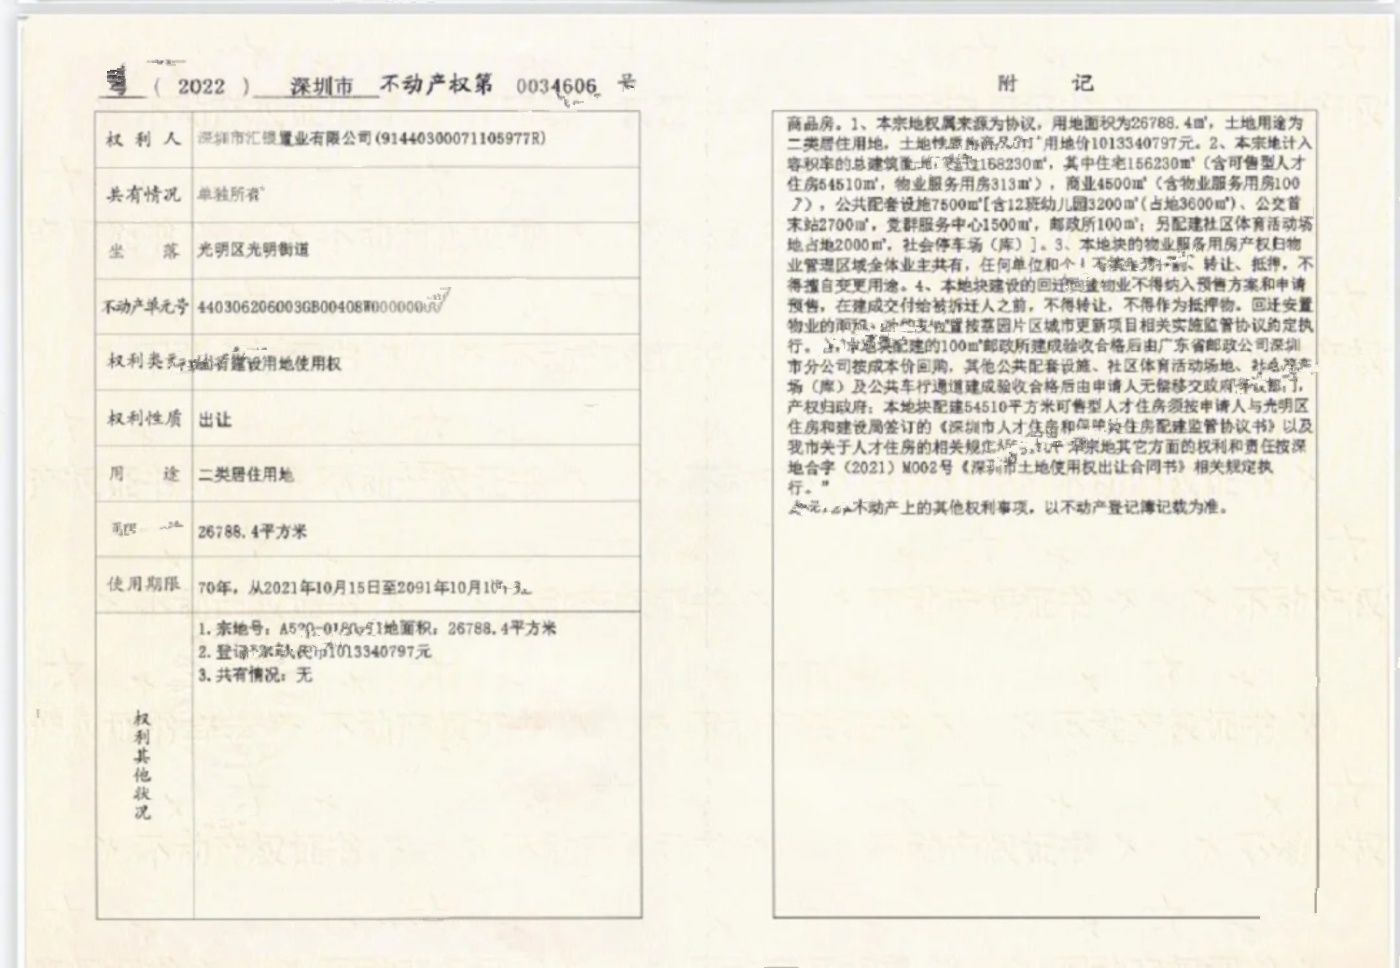 粤 ( 2022 ) 深圳市 不动产权第 0034606 号
权利人 深圳市汇银置业有限公司(91440300071105977R)
共有情况 单独所有
坐落 光明区光明街道
不动产单元号 440306206003GB00408W0000000
权利类 国有建设用地使用权
权利性质 出让
用途 二类居住用地
26788.4平方米
使用期限 70年，从2021年10月15日至2091年10月1
权利其他状况
1.宗地号： 地面积：26788.4平方米
2.登记 人民币1013340797元
3.共有情况：无
附记
商品房。1、本宗地权属来源为协议，用地面积为26788.4㎡，土地用途为
二类居住用地，土地性质为商品房 用地价1013340797元。2、本宗地计入
容积率的总建筑面 168230㎡，其中住宅156230㎡（含可售型人才
住房54510㎡，物业服务用房313㎡），商业4500㎡（含物业服务用房100
），公共配套设施7500㎡[含12班幼儿园3200㎡(占地3600㎡)、公交首
末站2700㎡，党群服务中心1500㎡，邮政所100㎡；另配建社区体育活动场
地占地2000㎡，社会停车场（库）]。3、本地块的物业服务用房产权归物
业管理区域全体业主共有，任何单位和个 、转让、抵押，不
得擅自变更用途。4、本地块建设的回迁 物业不得纳入预售方案和申请
预售，在建成交付给被拆迁人之前，不得转让，不得作为抵押物。回迁安置
物业的面积、 置按荔园片区城市更新项目相关实施监管协议约定执
行。 本地块配建的100㎡邮政所建成验收合格后由广东省邮政公司深圳
市分公司按成本价回购，其他公共配套设施、社区体育活动场地、社会停车
场（库）及公共车行通道建成验收合格后由申请人无偿移交政府 部门，
产权归政府；本地块配建54510平方米可售型人才住房须按申请人与光明区
住房和建设局签订的《深圳市人才住房和保障性住房配建监管协议书》以及
我市关于人才住房的相关规定 宗地其它方面的权利和责任按深
地合字（2021）M002号《深圳市土地使用权出让合同书》相关规定执
行。”
不动产上的其他权利事项，以不动产登记簿记载为准。